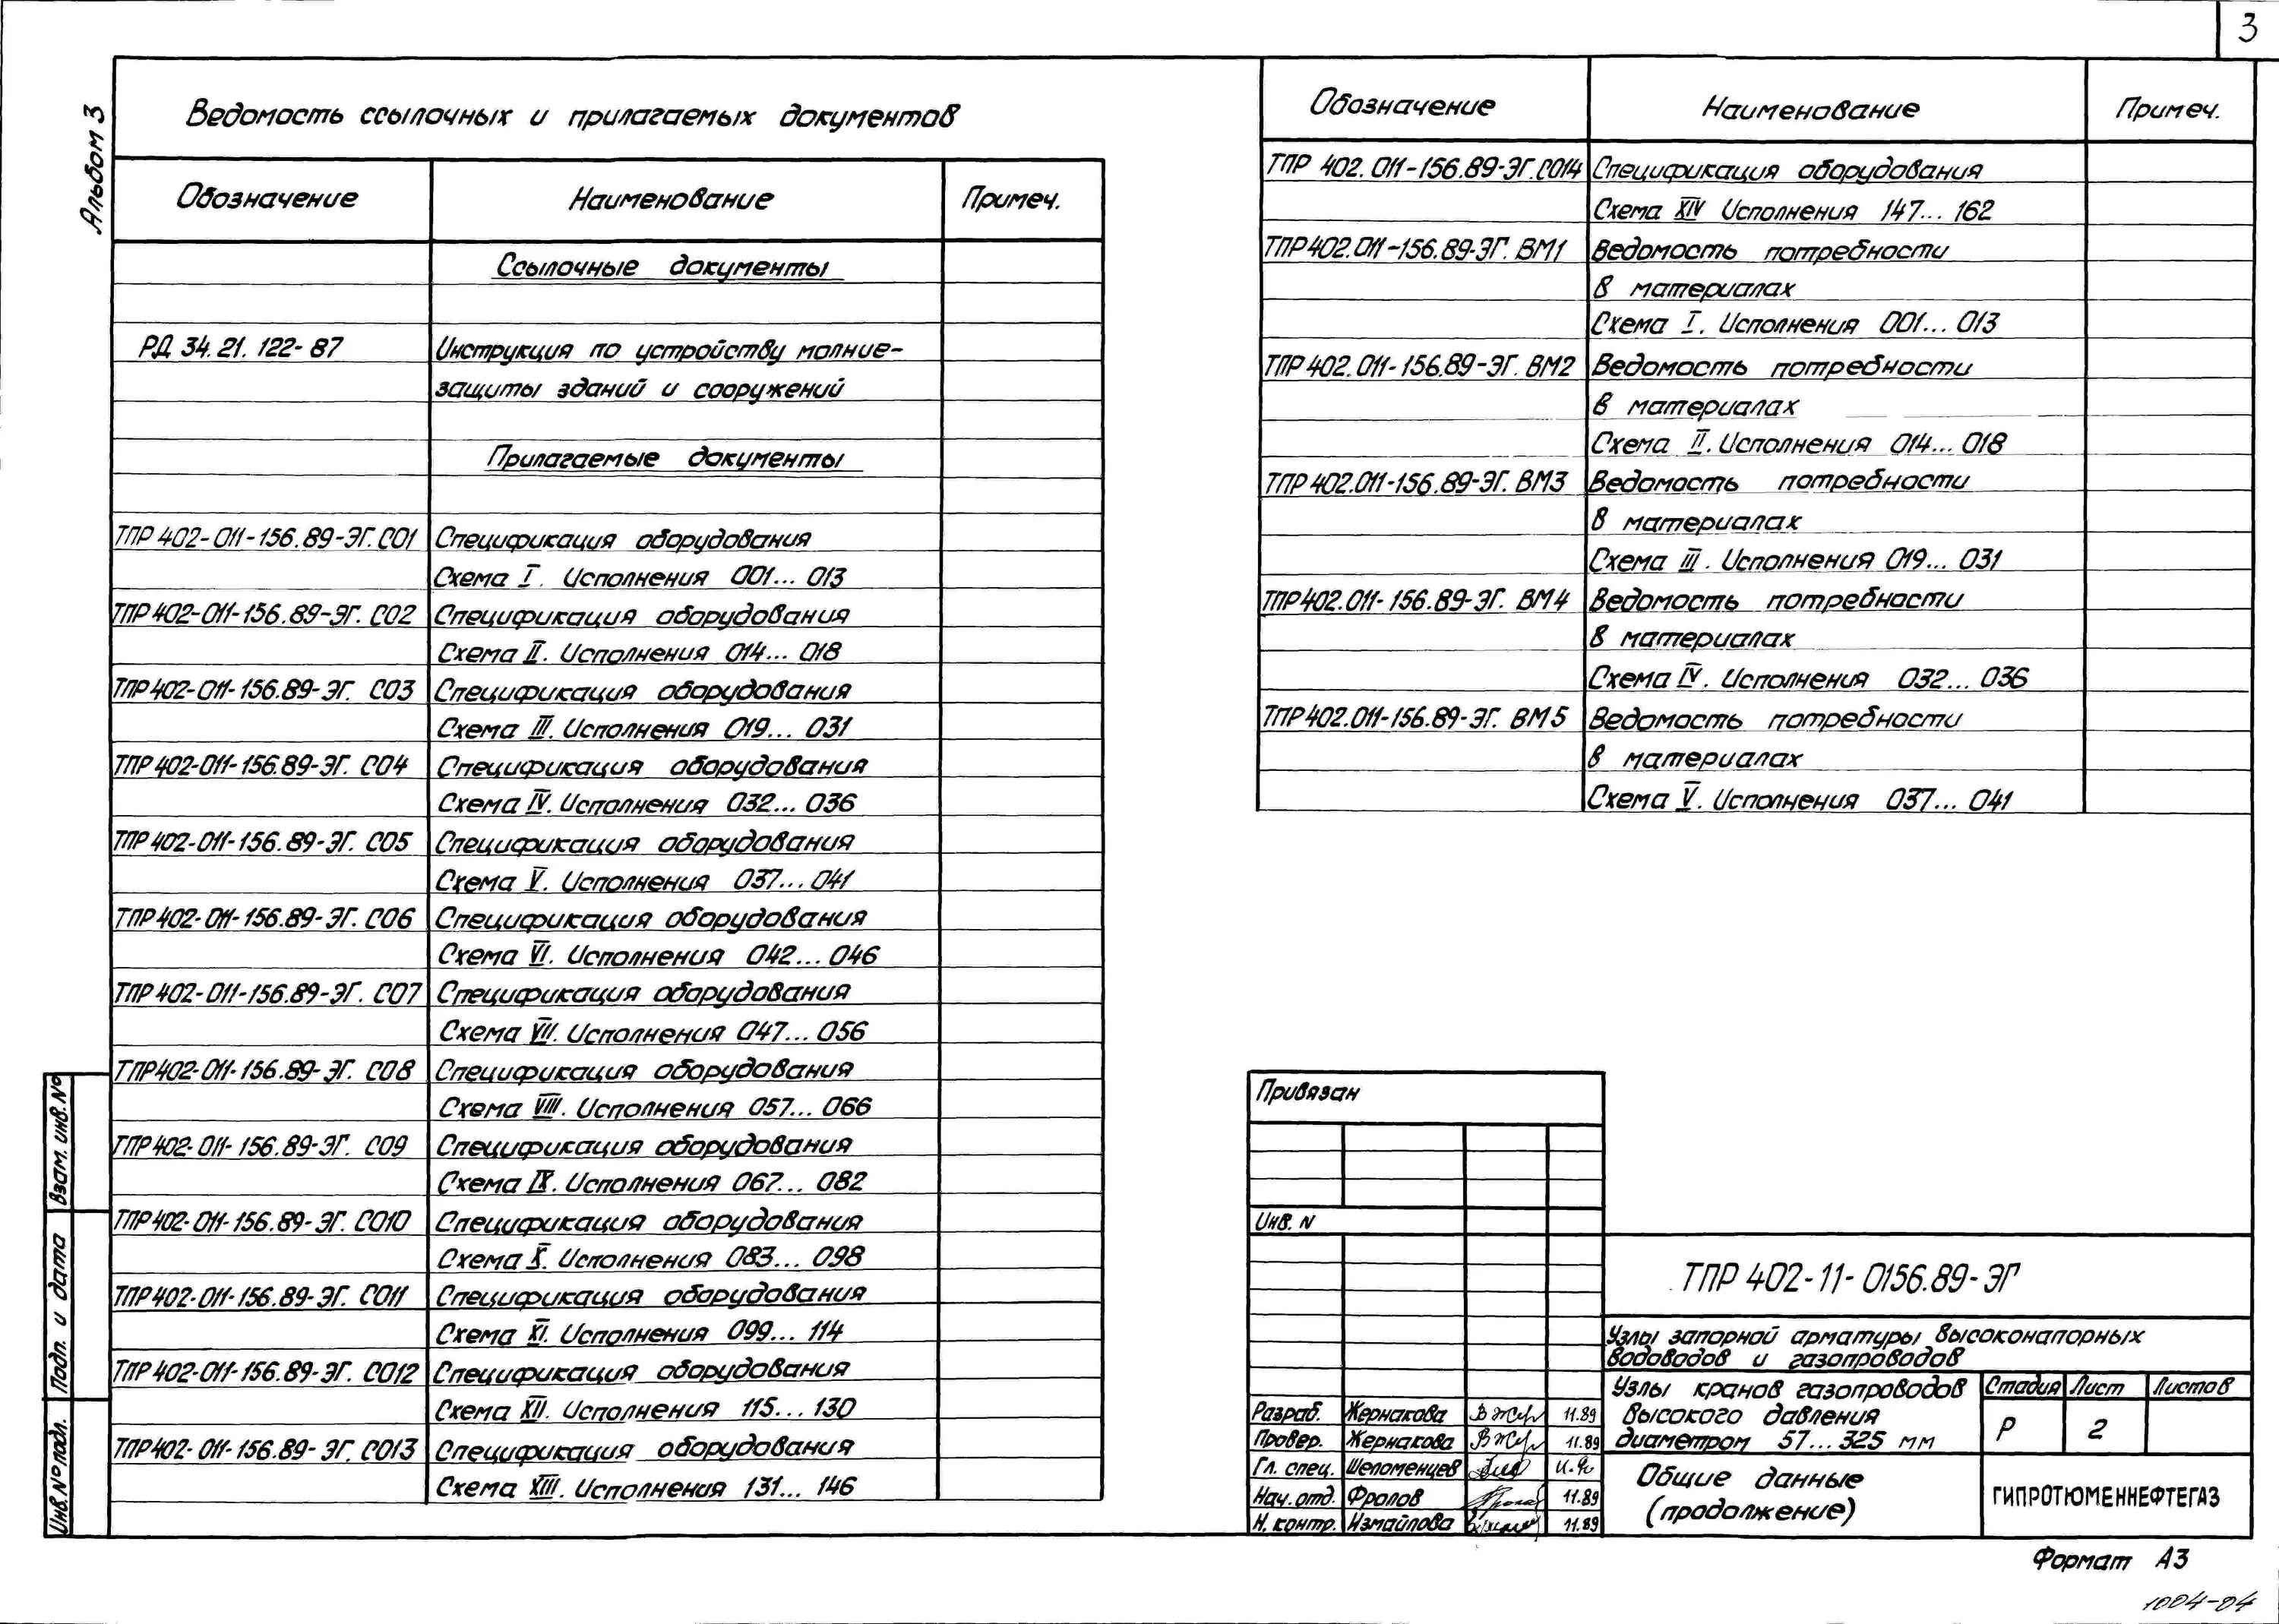 3
Альбом 3
Ведомость ссылочных и прилагаемых документов
Обозначение Наименование Примеч.
Ссылочные документы
РД 34.21.122-87 Инструкция по устройству молние-
защиты зданий и сооружений
Прилагаемые документы
ТПР 402-011-156.89-ЭГ.СО1 Спецификация оборудования
Схема I. Исполнения 001...013
ТПР 402-011-156.89-ЭГ. СО2 Спецификация оборудования
Схема II. Исполнения 014...018
ТПР 402-011-156.89-ЭГ. СО3 Спецификация оборудования
Схема III. Исполнения 019...031
ТПР 402-011-156.89-ЭГ. СО4 Спецификация оборудования
Схема IV. Исполнения 032...036
ТПР 402-011-156.89-ЭГ. СО5 Спецификация оборудования
Схема V. Исполнения 037...041
ТПР 402-011-156.89-ЭГ. СО6 Спецификация оборудования
Схема VI. Исполнения 042...046
ТПР 402-011-156.89-ЭГ. СО7 Спецификация оборудования
Схема VII. Исполнения 047...056
ТПР 402-011-156.89-ЭГ. СО8 Спецификация оборудования
Схема VIII. Исполнения 057...066
ТПР 402-011-156.89-ЭГ. СО9 Спецификация оборудования
Схема IX. Исполнения 067...082
ТПР 402-011-156.89-ЭГ. СО10 Спецификация оборудования
Схема X. Исполнения 083...098
ТПР 402-011-156.89-ЭГ. СО11 Спецификация оборудования
Схема XI. Исполнения 099...114
ТПР 402-011-156.89-ЭГ. СО12 Спецификация оборудования
Схема XII. Исполнения 115...130
ТПР 402-011-156.89-ЭГ. СО13 Спецификация оборудования
Схема XIII. Исполнения 131...146
Обозначение Наименование Примеч.
ТПР 402.011-156.89-ЭГ.СО14 Спецификация оборудования
Схема XIV Исполнения 147...162
ТПР 402.011-156.89-ЭГ. ВМ1 Ведомость потребности
в материалах
Схема I. Исполнения 001...013
ТПР 402.011-156.89-ЭГ. ВМ2 Ведомость потребности
в материалах
Схема II. Исполнения 014...018
ТПР 402.011-156.89-ЭГ. ВМ3 Ведомость потребности
в материалах
Схема III. Исполнения 019...031
ТПР 402.011-156.89-ЭГ. ВМ4 Ведомость потребности
в материалах
Схема IV. Исполнения 032...036
ТПР 402.011-156.89-ЭГ. ВМ5 Ведомость потребности
в материалах
Схема V. Исполнения 037...041
Взам. инв. №
Подп. и дата
Инв. № подл.
Привязан
Инв. N
ТПР 402-11-0156.89-ЭГ
Узлы запорной арматуры высоконапорных
водоводов и газопроводов
Узлы кранов газопроводов
высокого давления
диаметром 57...325 мм
Стадия Лист Листов
Р 2
Разраб. Жернакова 11.89
Провер. Жернакова 11.89
Гл. спец. Шеломенцев
Нач. отд. Фролов 11.89
Н. контр. Измайлова 11.89
Общие данные
(продолжение)
ГИПРОТЮМЕННЕФТЕГАЗ
Формат А3
1004-04